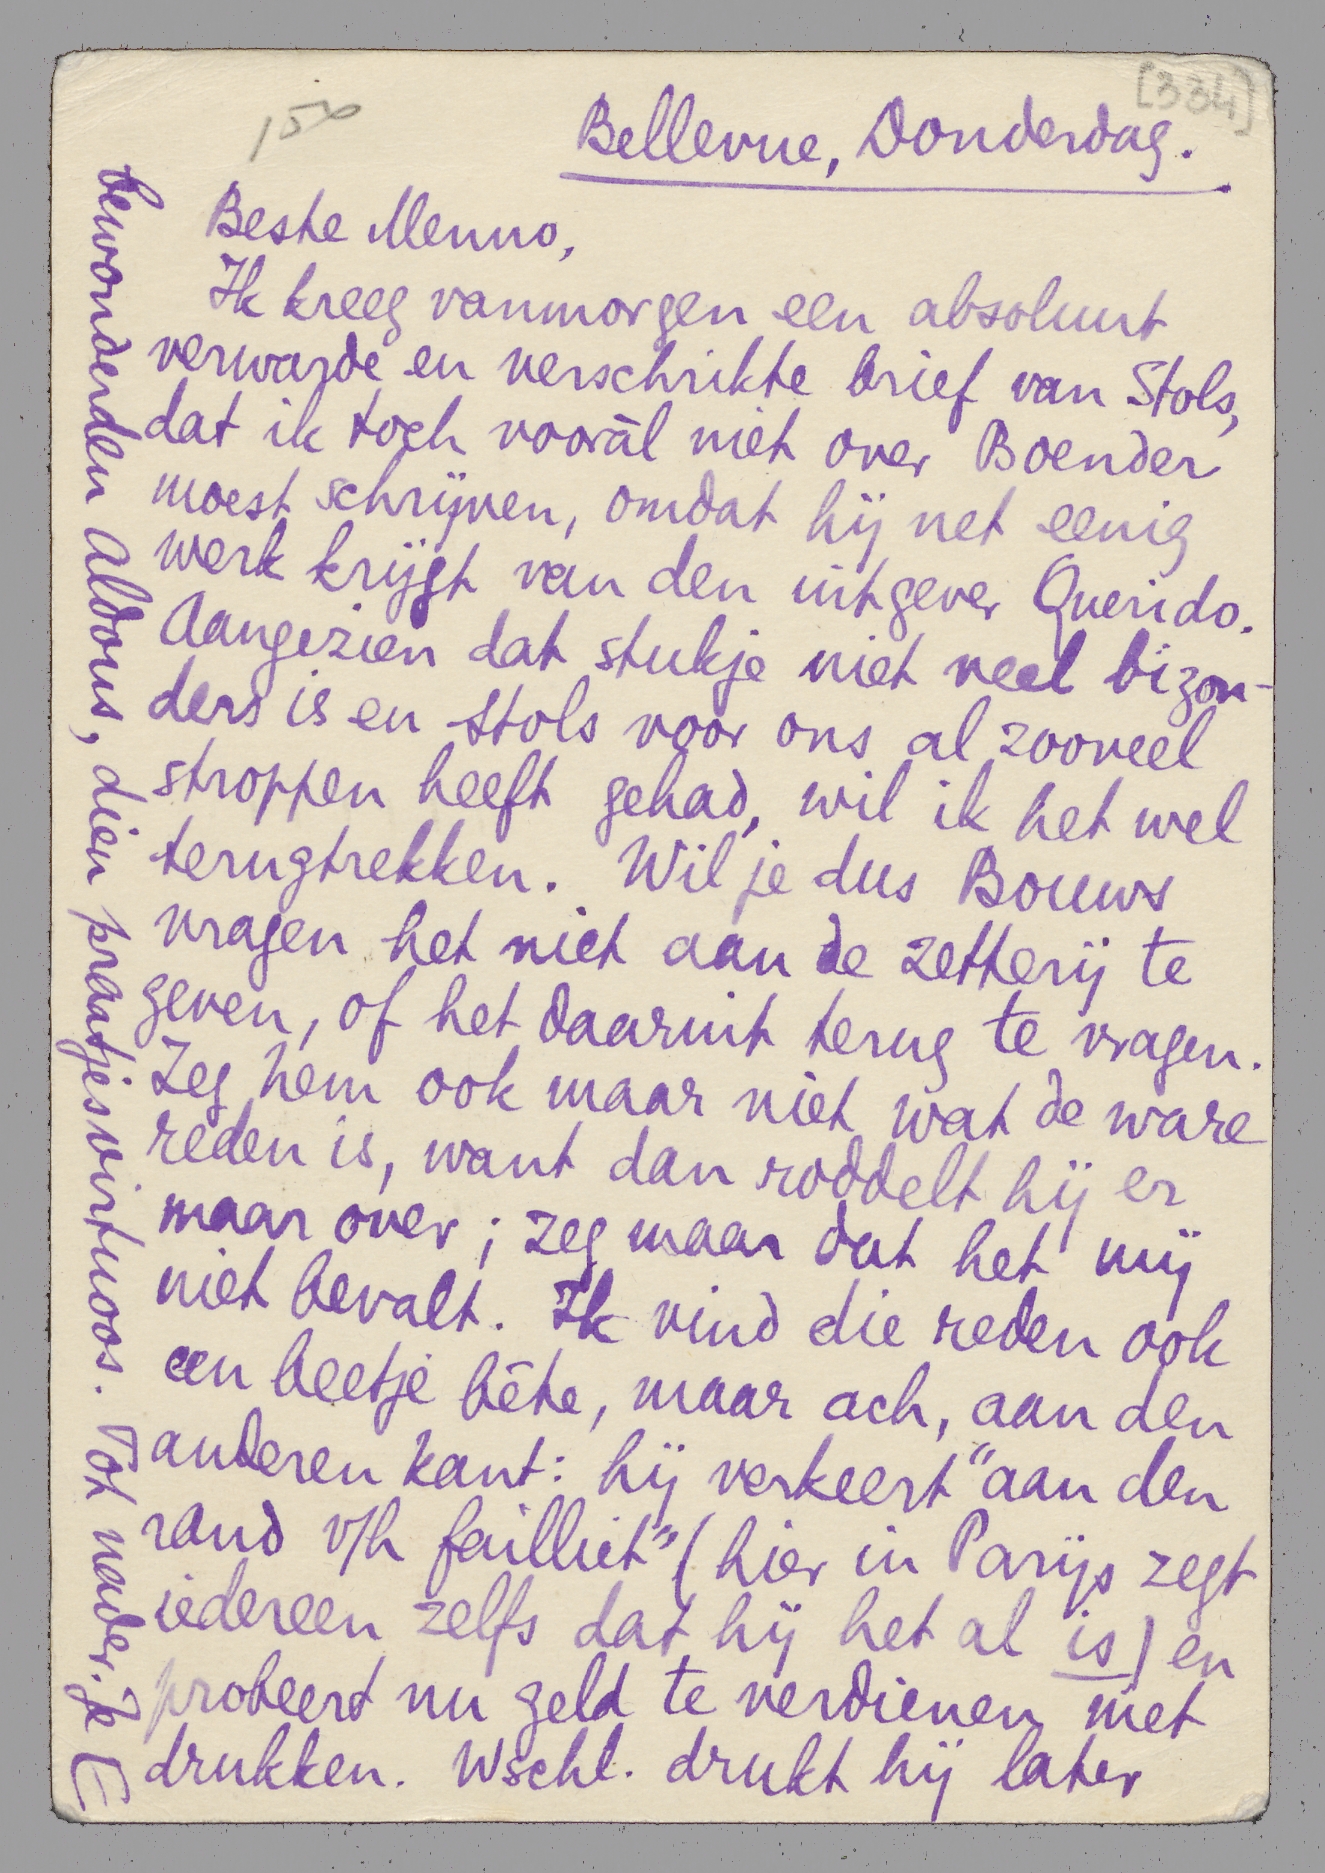 [334]
150
Bellevue, Donderdag.
Beste Menno,
Ik kreeg vanmorgen een absoluut
verwarde en verschrikte brief van Stols,
dat ik toch voorál niet over Boender
moest schrijven, omdat hij net eenig
werk krijgt van den uitgever Querido.
Aangezien dat stukje niet veel bizon-
ders is en Stols voor ons al zooveel
stroppen heeft gehad, wil ik het wel
terugtrekken. Wil je dus Bouws
vragen het niet aan de zetterij te
geven, of het daaruit terug te vragen.
Zeg hem ook maar niet wat de ware
reden is, want dan roddelt hij er
maar over; zeg maar dat het mij
niet bevalt. Ik vind die reden ook
een beetje bête, maar ach, aan den
anderen kant: hij verkeert "aan den
rand v/h failliet" (hier in Parijs zegt
iedereen zelfs dat hij het al is) en
probeert nu geld te verdienen met
drukken. Wschl. drukt hij later
bewonderden Aldous, dien praatjesvirtuoos. Tot nader. Je E